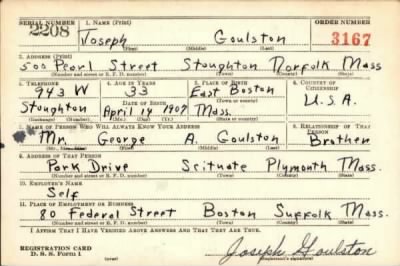 SERIAL NUMBER 1. NAME (Print) ORDER NUMBER
2208 Joseph Goulston 3167
(First) (Middle) (Last)
2. ADDRESS (Print)
500 Pearl Street Stoughton Norfolk Mass
(Number and street or R. F. D. number) (Town) (County) (State)
3. TELEPHONE 4. AGE IN YEARS 5. PLACE OF BIRTH 6. COUNTRY OF CITIZENSHIP
943 W 33 East Boston
(Town or county)
DATE OF BIRTH U.S.A.
Stoughton April 14 1907 Mass.
(Exchange) (Number) (Mo.) (Day) (Yr.) (State or country)
7. NAME OF PERSON WHO WILL ALWAYS KNOW YOUR ADDRESS 8. RELATIONSHIP OF THAT PERSON
Mr. George A. Goulston Brother
(Mr., Mrs., Miss) (First) (Middle) (Last)
9. ADDRESS OF THAT PERSON
Park Drive Scituate Plymouth Mass.
(Number and street or R. F. D. number) (Town) (County) (State)
10. EMPLOYER'S NAME
Self
11. PLACE OF EMPLOYMENT OR BUSINESS
80 Federal Street Boston Suffolk Mass.
(Number and street or R. F. D. number) (Town) (County) (State)
I AFFIRM THAT I HAVE VERIFIED ABOVE ANSWERS AND THAT THEY ARE TRUE.
REGISTRATION CARD
D. S. S. Form 1 (over) Joseph Goulston
(Registrant's signature)